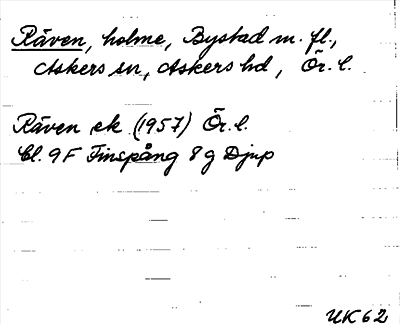 Räven, holme, Bystad m. fl.,
Askers sn, Askers hd, Ör. l.
Räven ek (1957) Ör. l.
Bl. 9F Finspång 8g Djup
UK62